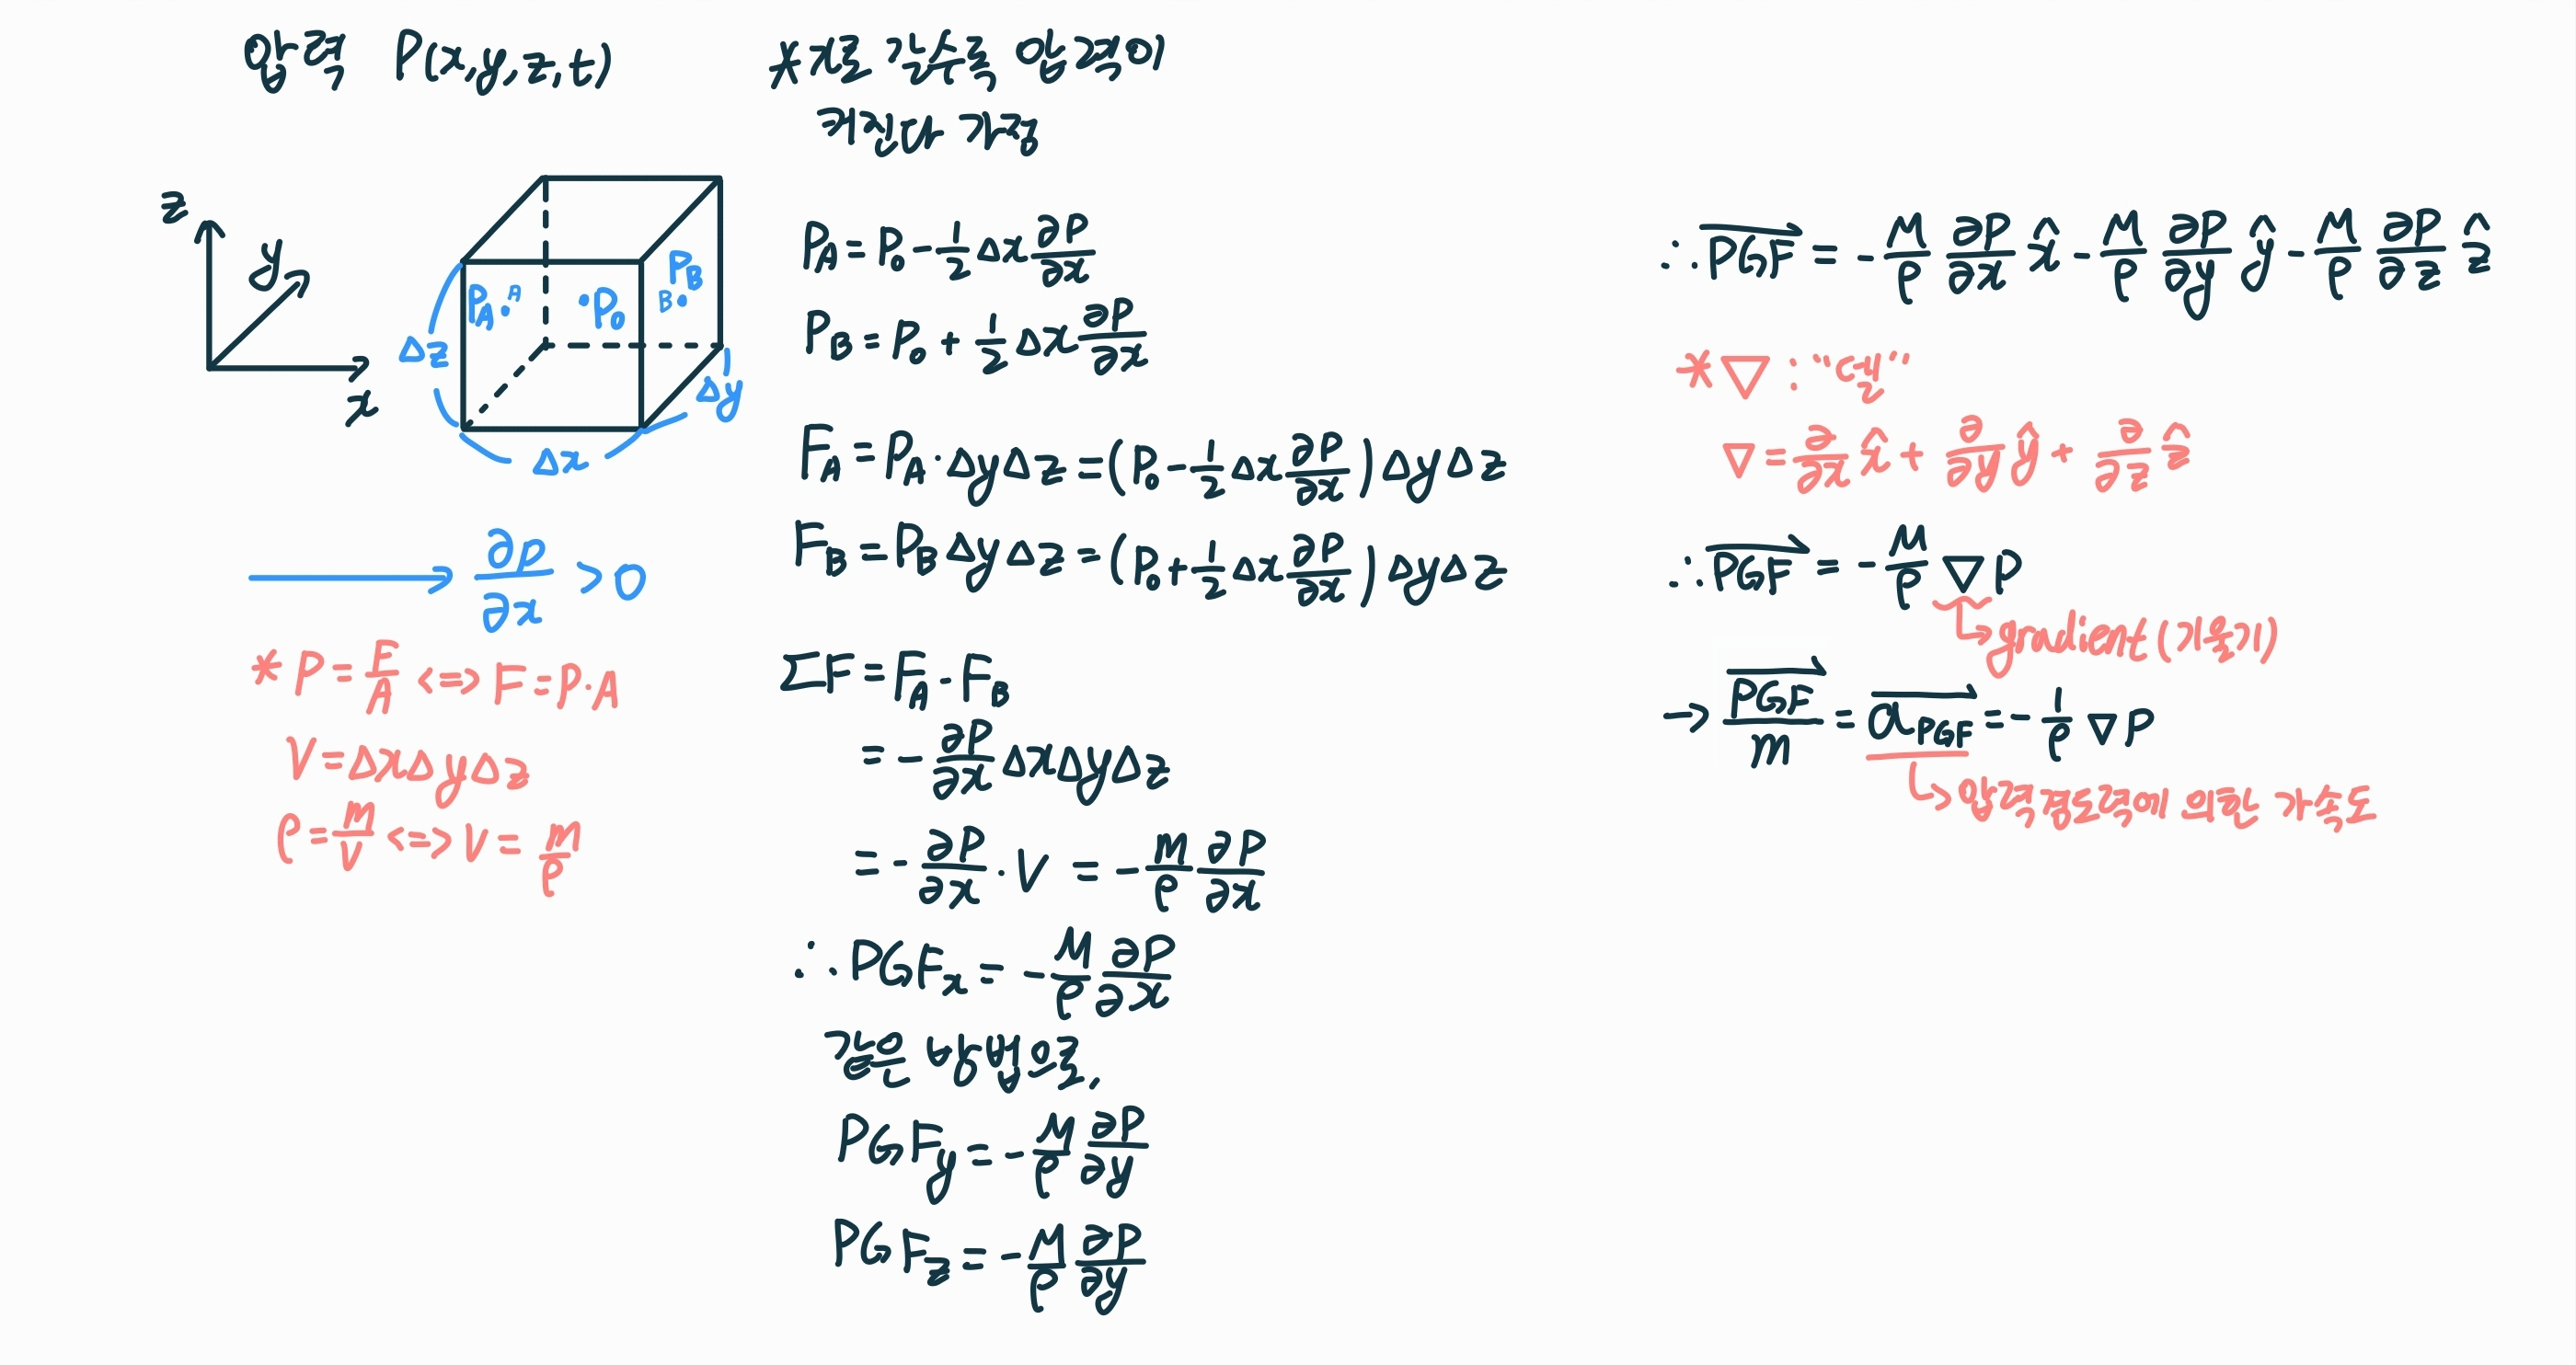 압력 P(x,y,z,t)
z
y
x
P_A · A
· P_0
P_B
B ·
Δz
Δy
Δx
→ ∂p/∂x > 0
* P = F/A <=> F = P·A
V = ΔxΔyΔz
ρ = m/V <=> V = m/ρ
* x로 갈수록 압력이
커진다 가정
P_A = P_0 - 1/2 Δx ∂P/∂x
P_B = P_0 + 1/2 Δx ∂P/∂x
F_A = P_A · ΔyΔz = (P_0 - 1/2 Δx ∂P/∂x) ΔyΔz
F_B = P_B ΔyΔz = (P_0 + 1/2 Δx ∂P/∂x) ΔyΔz
ΣF = F_A - F_B
= - ∂P/∂x ΔxΔyΔz
= - ∂P/∂x · V = - m/ρ ∂P/∂x
∴ PGF_x = - M/ρ ∂P/∂x
같은 방법으로,
PGF_y = - M/ρ ∂P/∂y
PGF_z = - M/ρ ∂P/∂y
∴ \overrightarrow{PGF} = - M/ρ ∂P/∂x x̂ - M/ρ ∂P/∂y ŷ - M/ρ ∂P/∂z ẑ
* ▽ : "델"
▽ = ∂/∂x x̂ + ∂/∂y ŷ + ∂/∂z ẑ
∴ \overrightarrow{PGF} = - M/ρ ▽P
↳ gradient (기울기)
→ \overrightarrow{PGF}/m = \overrightarrow{a_{PGF}} = - 1/ρ ▽P
↳ 압력경도력에 의한 가속도